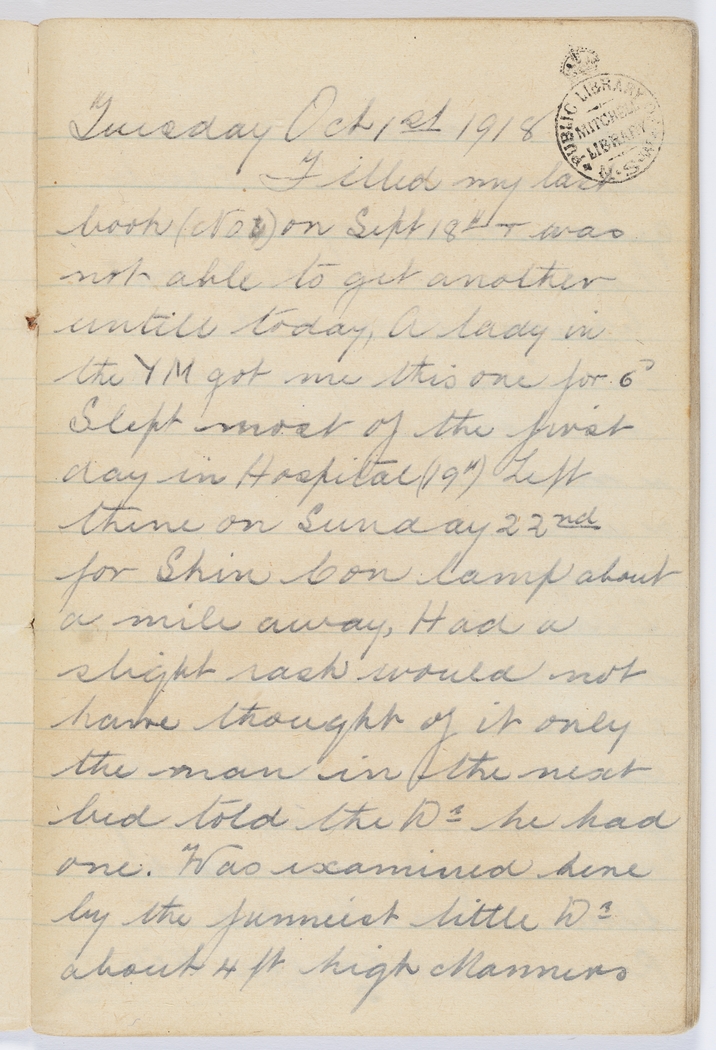 Tuesday Oct 1st 1918
PUBLIC LIBRARY OF N.S.W.
MITCHELL
LIBRARY
Filled my last
book (No ) on Sept 18th + was
not able to get another
untill today, A lady in
the YM got me this one for 6d
Slept most of the first
day in Hospital (19th) Left
there on Sunday 22nd
for Skin Con camp about
a mile away, Had a
slight rash would not
have thought of it only
the man in the next
bed told the Dr he had
one. Was examined here
by the funniest little Dr
about 4 ft high Manners